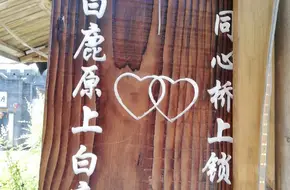 同心桥上锁
白鹿原上白